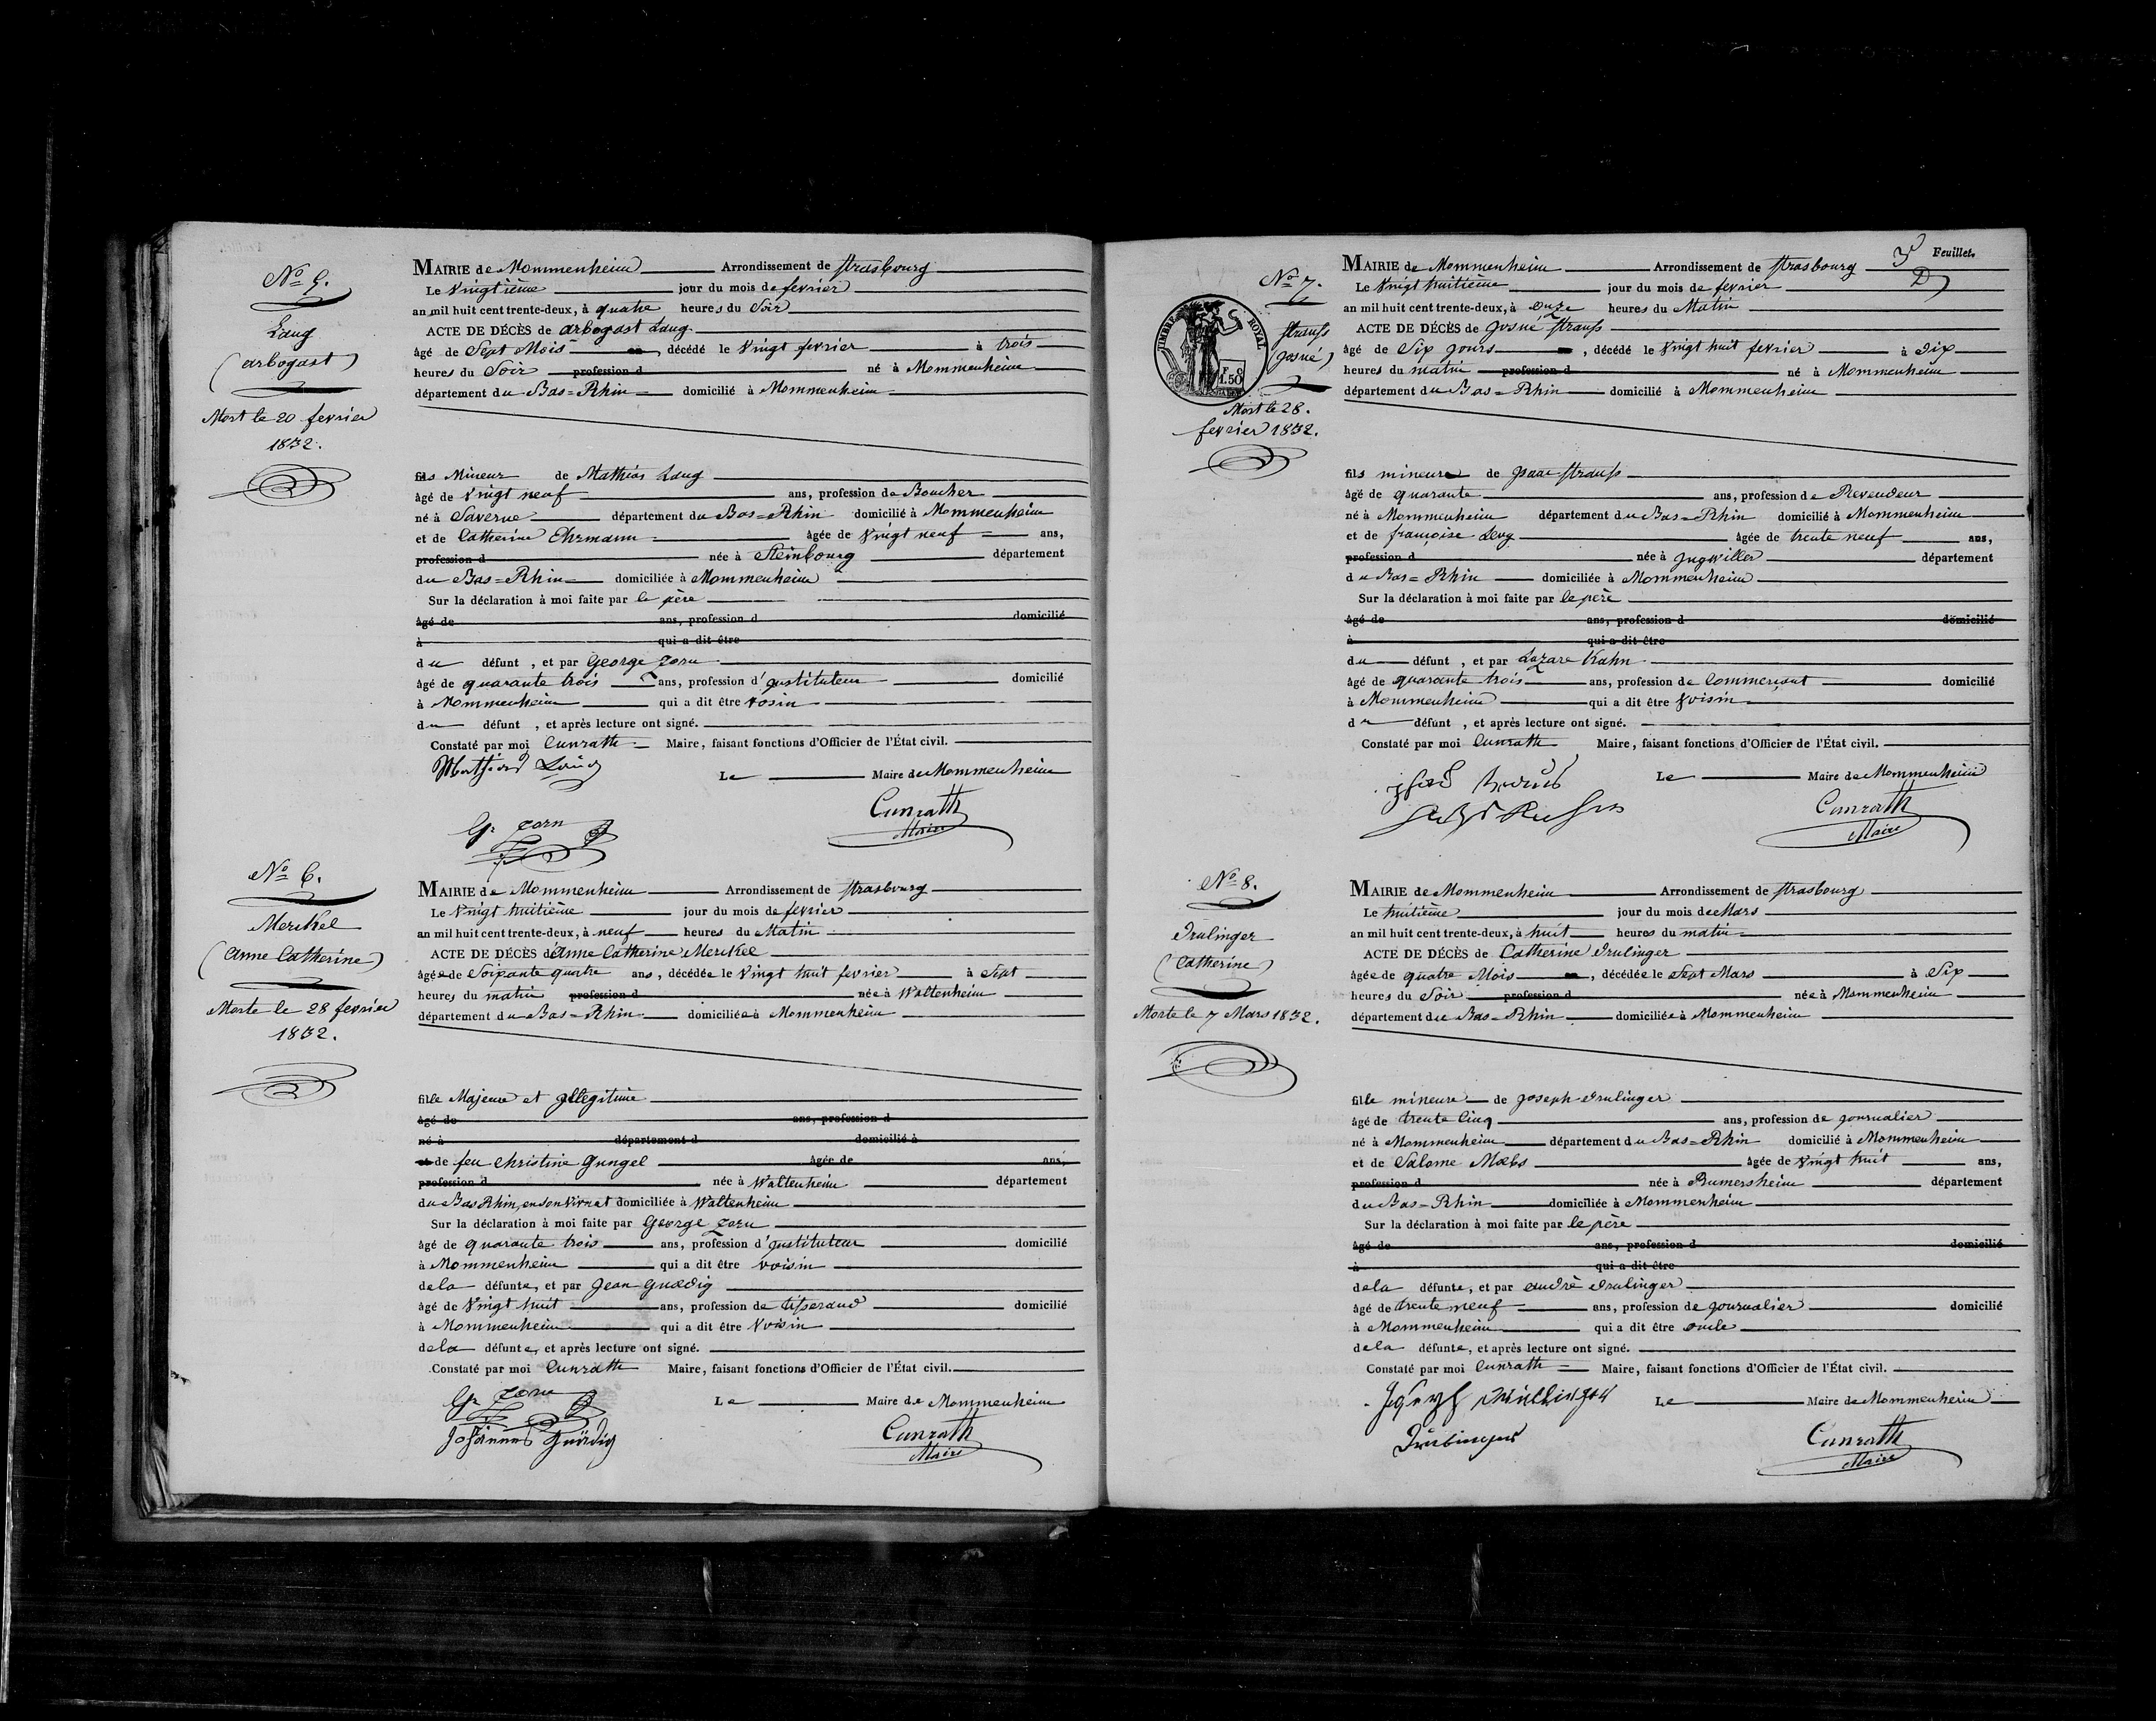 No 5.
Laug
(arbogast)
Mort le 20 fevrier
1832.
MAIRIE de Mommenheim Arrondissement de Strasbourg
Le Vingtième jour du mois de fevrier
an mil huit cent trente-deux, à quatre heures du Soir
ACTE DE DÉCÈS de arbogast Laug
âgé de Sept Mois an, décédé le Vingt fevrier à trois
heures du Soir profession d né à Mommenheim
département du Bas=Rhin domicilié à Mommenheim
fils Mineur de Mathias Laug
âgé de Vingt neuf ans, profession de Boucher
né à Saverne département du Bas=Rhin domicilié à Mommenheim
et de Catherine Ehrmann âgée de Vingt neuf ans,
profession d née à Steinbourg département
du Bas=Rhin domiciliée à Mommenheim
Sur la déclaration à moi faite par le père
âgé de ans, profession d domicilié
à qui a dit être
du défunt , et par George Zorn
âgé de quarante trois ans, profession d'Instituteur domicilié
à Mommenheim qui a dit être Vosin
du défunt , et après lecture ont signé.
Constaté par moi Cunrath Maire, faisant fonctions d'Officier de l'État civil.
Mathias Laug
Le Maire de Mommenheim
Gr Zorn
Cunrath
Maire
No 6.
Merikel
(Anne Catherine)
Morte le 28 fevrier
1832.
MAIRIE de Mommenheim Arrondissement de Strasbourg
Le Vingt huitième jour du mois de fevrier
an mil huit cent trente-deux, à neuf heures du Matin
ACTE DE DÉCÈS d'Anne Catherine Merikel
âgée de Soixante quatre ans, décédée le Vingt huit fevrier à Sept
heures du matin profession d née à Waltenheim
département du Bas=Rhin domiciliée à Mommenheim
fille Majeure et Illegitime
âgé de ans, profession d
né à département d domicilié à
et de feu Christine Gungel âgée de ans,
profession d née à Waltenheim département
du Bas Rhin, en son vivant domiciliée à Waltenheim
Sur la déclaration à moi faite par George Zorn
âgé de quarante trois ans, profession d'Instituteur domicilié
à Mommenheim qui a dit être voisin
de la défunte, et par Jean Guædig
âgé de Vingt huit ans, profession de tisserand domicilié
à Mommenheim qui a dit être Voisin
de la défunte, et après lecture ont signé.
Constaté par moi Cunrath Maire, faisant fonctions d'Officier de l'État civil.
Gr Zorn
Le Maire de Mommenheim
Johannes Guädig
Cunrath
Maire
3 Feuillet.
D
No 7.
TIMBRE ROYAL
F. C
1.50
Strauss
(Josué)
Mort le 28.
fevrier 1832.
MAIRIE de Mommenheim Arrondissement de Strasbourg
Le Vingt huitième jour du mois de fevrier
an mil huit cent trente-deux, à onze heures du Matin
ACTE DE DÉCÈS de Josué Strauss
âgé de Six jours , décédé le Vingt huit fevrier à Dix
heures du matin profession d né à Mommenheim
département du Bas=Rhin domicilié à Mommenheim
fils mineure de Isaac Strauss
âgé de quarante ans, profession de Revendeur
né à Mommenheim département du Bas=Rhin domicilié à Mommenheim
et de françoise Levy âgée de trente neuf ans,
profession d née à Ingwiller département
du Bas=Rhin domiciliée à Mommenheim
Sur la déclaration à moi faite par le père
âgé de ans, profession d domicilié
à qui a dit être
du défunt , et par Lazare Kahn
âgé de quarante trois ans, profession de Commerçant domicilié
à Mommenheim qui a dit être Voisin
du défunt , et après lecture ont signé.
Constaté par moi Cunrath Maire, faisant fonctions d'Officier de l'État civil.
Le Maire de Mommenheim
Cunrath
Maire
No 8.
Drulinger
(Catherine)
Morte le 7 Mars 1832.
MAIRIE de Mommenheim Arrondissement de Strasbourg
Le huitième jour du mois de Mars
an mil huit cent trente-deux, à huit heures du matin
ACTE DE DÉCÈS de Catherine Drulinger
âgée de quatre Mois , décédée le Sept Mars à Six
heures du Soir profession d née à Mommenheim
département du Bas=Rhin domiciliée à Mommenheim
fille mineure de Joseph Drulinger
âgé de trente Cinq ans, profession de journalier
né à Mommenheim département du Bas=Rhin domicilié à Mommenheim
et de Salome Mæbs âgée de Vingt huit ans,
profession d née à Rumersheim département
du Bas=Rhin domiciliée à Mommenheim
Sur la déclaration à moi faite par le père
âgé de ans, profession d domicilié
à qui a dit être
de la défunte, et par André Drulinger
âgé de trente neuf ans, profession de journalier domicilié
à Mommenheim qui a dit être oncle
de la défunte, et après lecture ont signé.
Constaté par moi Cunrath Maire, faisant fonctions d'Officier de l'État civil.
Le Maire de Mommenheim
Cunrath
Maire